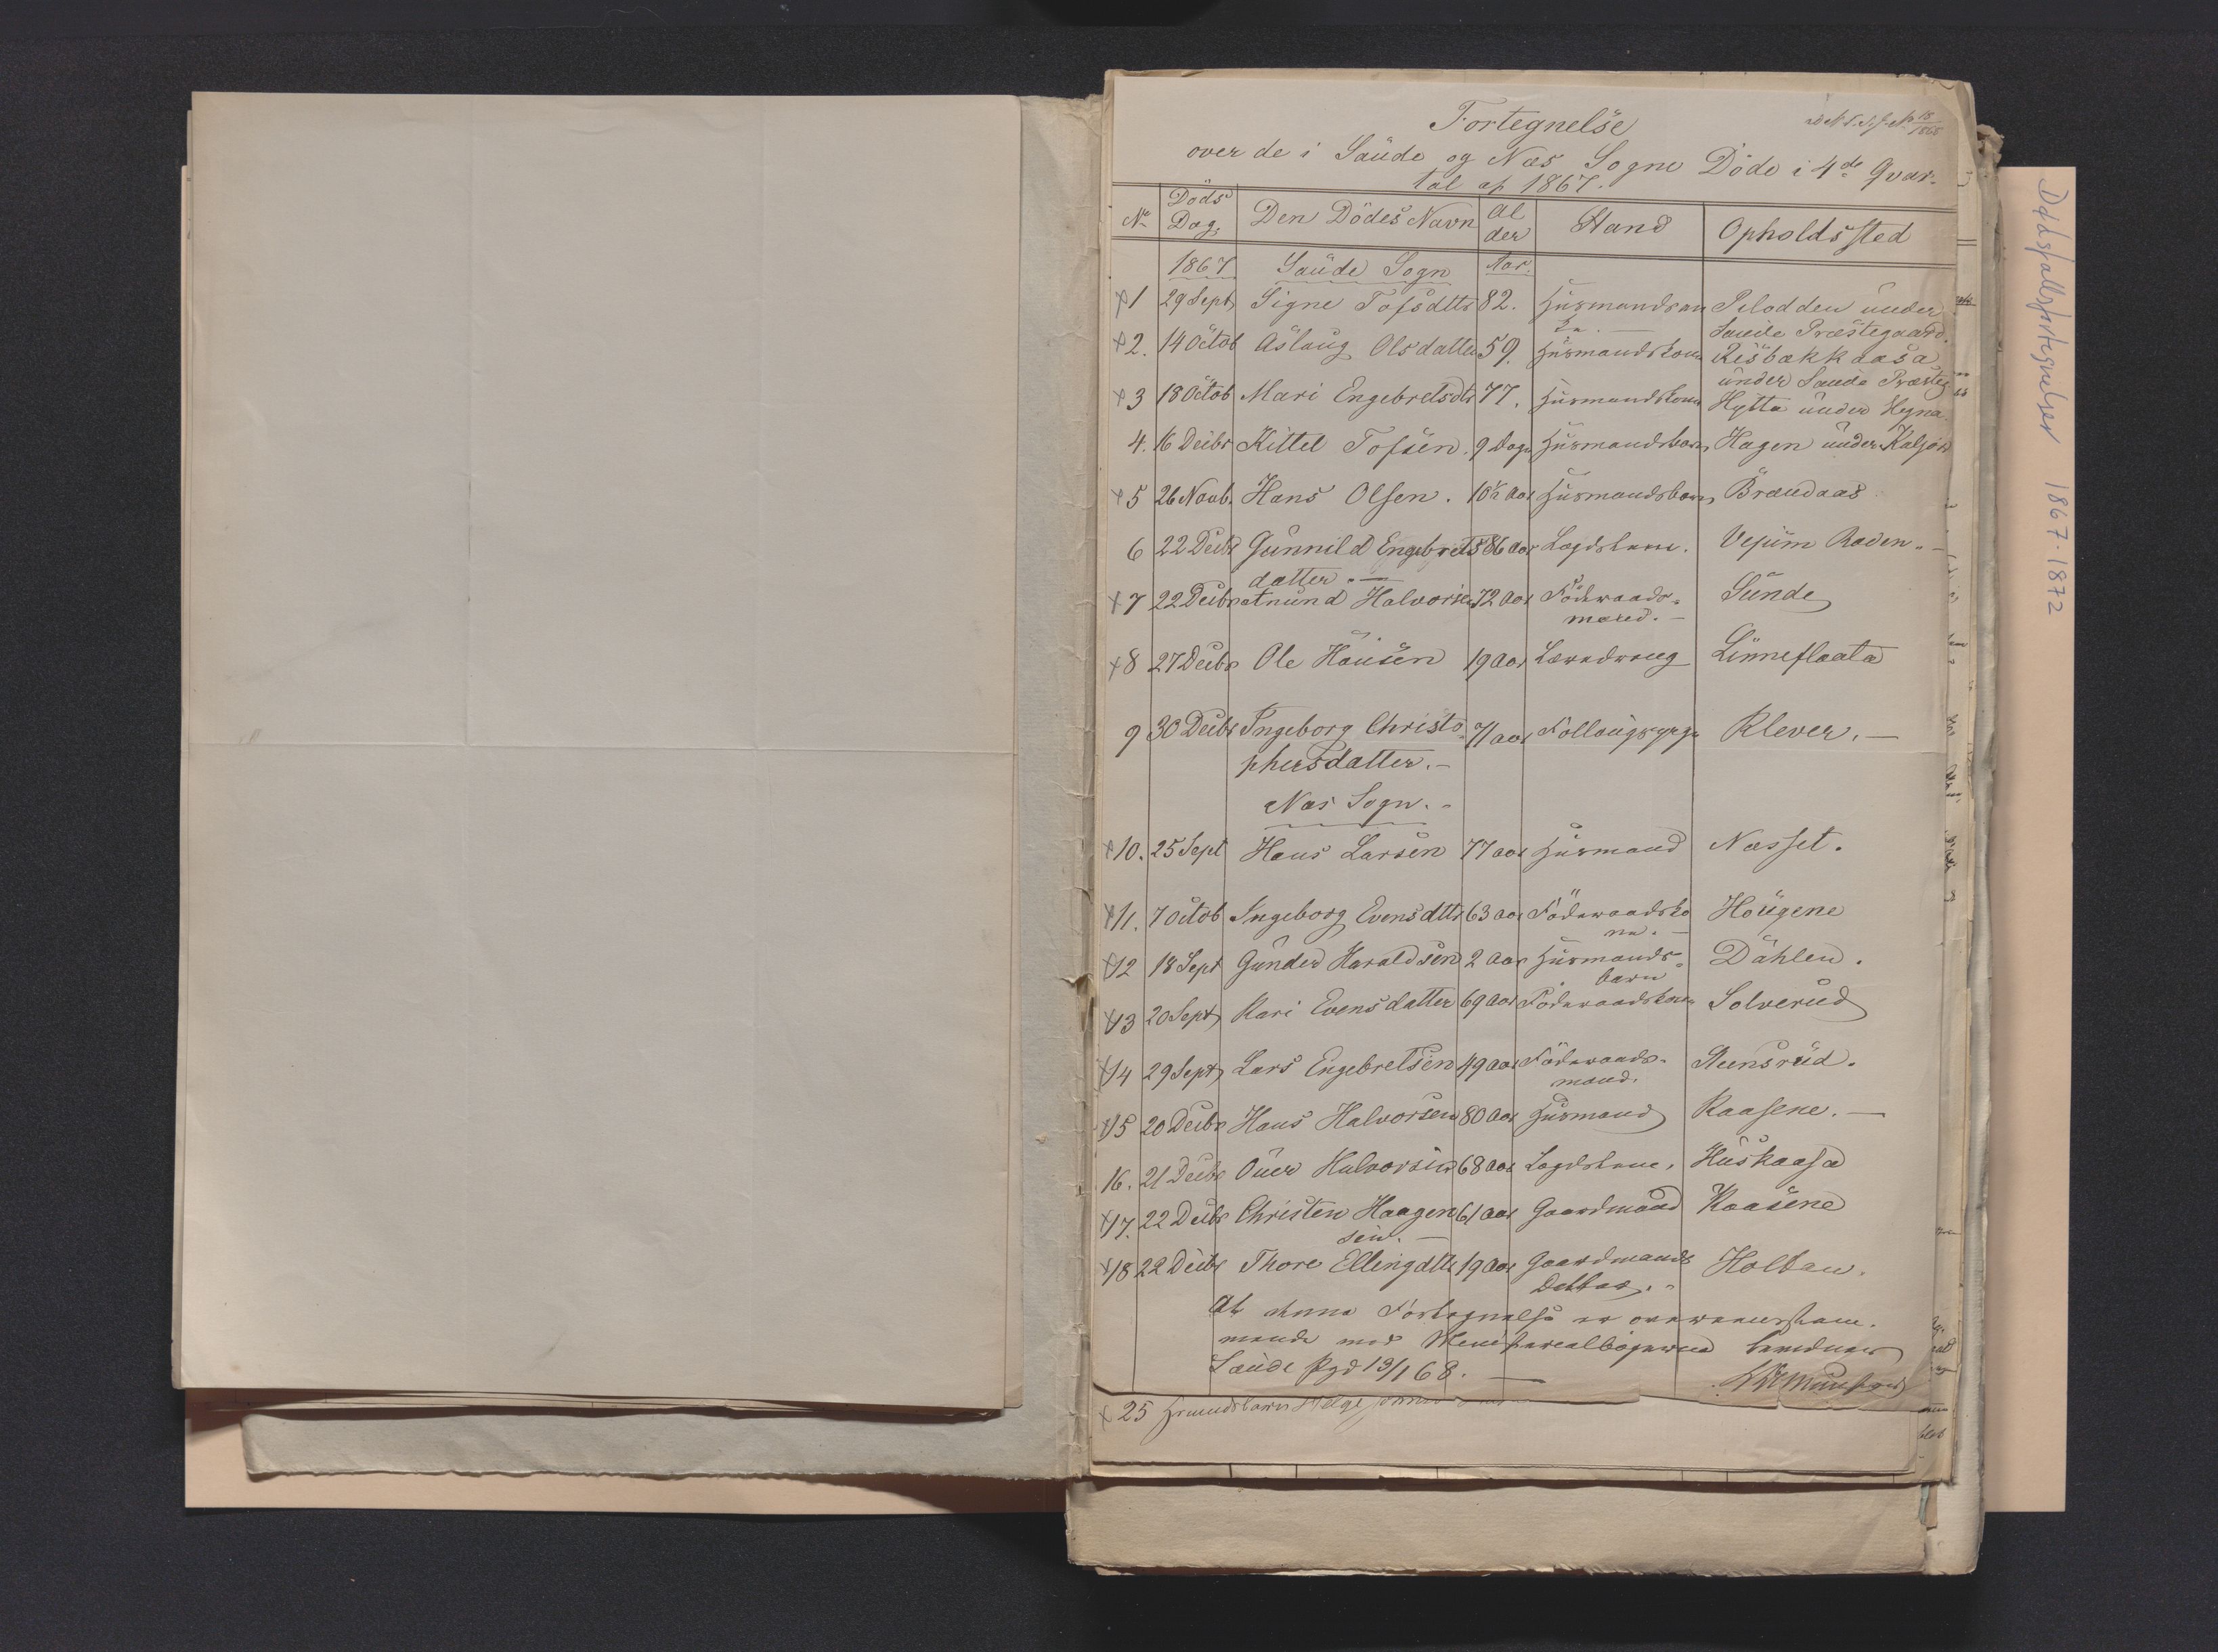 Fortegnelse
over de i Saude og Næs Sogne Döde i 4de Qvar-
tal af 1867.
No Döds Dag, Den Dödes Navn Alder Stand Opholdssted
1867 Saude Sogn Aar.
1 29 Sept Signe Tofsdttr 82. Huusmandsen- Pelodden under
ka. Saude Præstegaard.
2. 14 Octob Aslaug Olsdatter 59. Huusmandskone Risbækkaasa
under Saude Præsteg
3 18 Octob Mari Engebretsdtr 77. Huusmandskone Hytta under Hegna.
4. 16 Decbr Kittel Tofsen. 9 Dage Huusmandsbarn, Hagen under
5 26 Novb. Hans Olsen. 10½ Aar Huusmandsbarn, Brændaas
6 22 Decbr Gunnild Engebrets 86 Aar Lægdslem. Vejum Roden.
datter.
7 22 Decbr Amund Halvorsen 72 Aar Föderaads-
mand. Sunde
8 27 Decbr Ole Hansen 19 Aar Linneflaata
9 30 Decbr Ingeborg Christo- 71 Aar Klever.
phersdatter.
Næs Sogn.
10. 25 Sept Hans Larsen 77 Aar Huusmand Næsset.
11. 7 Octob Ingeborg Evensdttr 63 Aar Föderaadsko Hougene
ne.
12 18 Sept Gunder Haraldsen 2 Aar Huusmands- Dahlen.
barn
13 20 Sept Kari Evensdatter 69 Aar Föderaadskone Solverud
14 29 Sept Lars Engebretsen 49 Aar Föderaads- Steensrud.
mand.
15 20 Decbr Hans Halvorsen 80 Aar Huusmand Kaasene.
16. 21 Decbr Halvorsen 68 Aar Lægdslem. Huskaasa
17. 22 Decbr Christen Haagen 61 Aar Gaardmand Kaasene
sen.
18 22 Decbr Thore Ellingdttr 19 Aar Gaardmands Holtan.
Datter.
At denne Fortegnelse er overeensstem-
mende med Ministerialbögerne bevidner
Saude Pgd 13/1 68.
25 Huusmandsbarn Helge
Dødsfallsfortegnelser 1867-1872